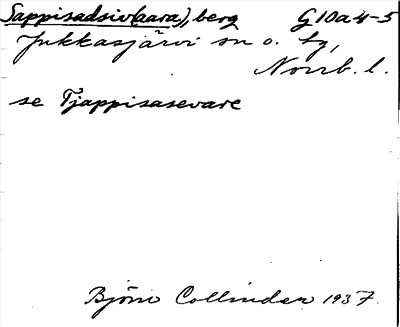 Sappisadsiv(aara), berg G10a4-5
Jukkasjärvi sn o. tg,
Norrb. l.
se Tjappisasevare
Björn Collinder 1937.